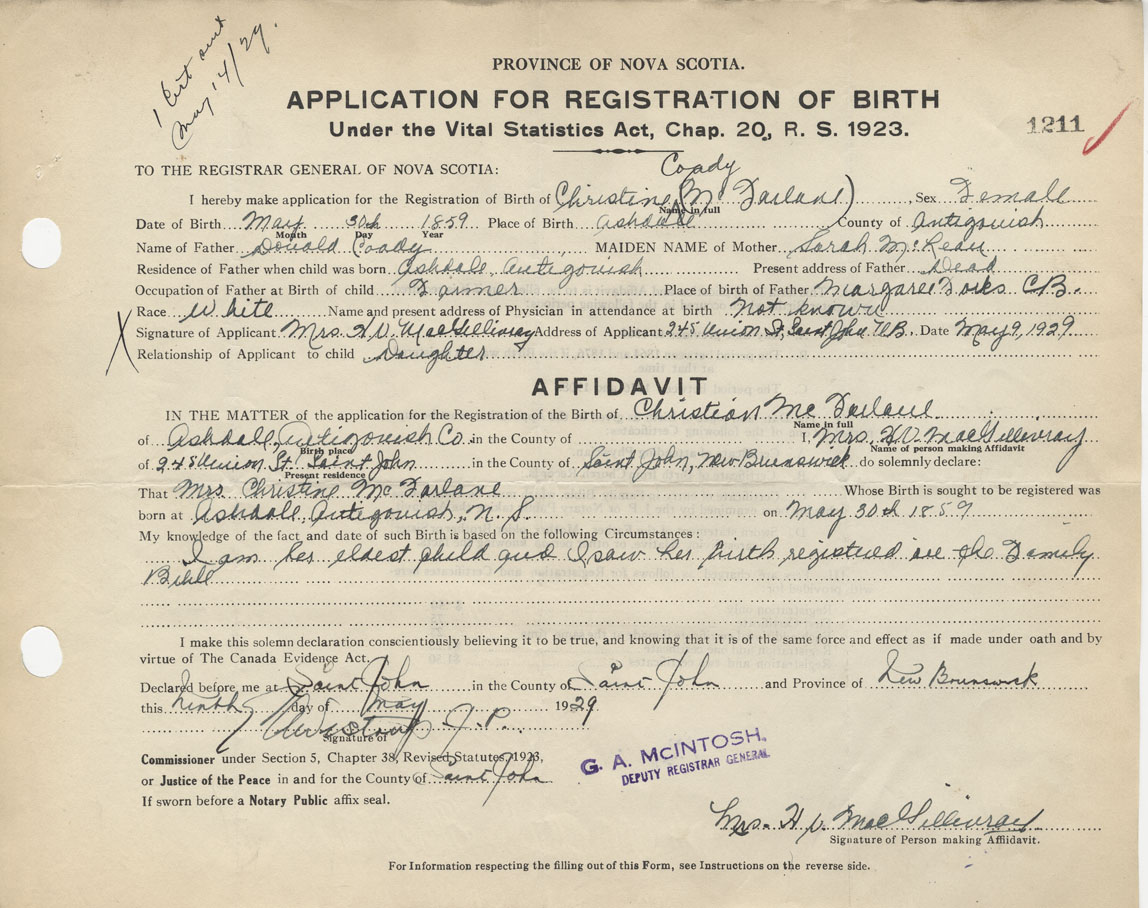 1 Cert sent
May 14/29.
PROVINCE OF NOVA SCOTIA.
APPLICATION FOR REGISTRATION OF BIRTH
Under the Vital Statistics Act, Chap. 20, R. S. 1923.
1211
TO THE REGISTRAR GENERAL OF NOVA SCOTIA:
Coady
I hereby make application for the Registration of Birth of Christine (McFarlane), Sex Female
Name in full
Date of Birth May 30th 1859 Place of Birth Ashdale County of Antigonish
Month Day Year
Name of Father Donald Coady MAIDEN NAME of Mother Sarah McLean
Residence of Father when child was born Ashdale, Antigonish Present address of Father Dead
Occupation of Father at Birth of child Farmer Place of birth of Father Margaree Forks C.B.
Race White Name and present address of Physician in attendance at birth Not known
X Signature of Applicant Mrs. H V MacGillivray Address of Applicant 245 Union St, Saint John N.B. Date May 9, 1929
Relationship of Applicant to child Daughter
AFFIDAVIT
IN THE MATTER of the application for the Registration of the Birth of Christian McFarlane
Name in full
of Ashdale, Antigonish Co. in the County of I, Mrs. H V. MacGillivray
Birth place Name of person making Affidavit
of 245 Union St. Saint John in the County of Saint John, New Brunswick do solemnly declare:
Present residence
That Mrs Christine McFarlane Whose Birth is sought to be registered was
born at Ashdale, Antigonish, N. S. on May 30th 1859
My knowledge of the fact and date of such Birth is based on the following Circumstances:
I am her eldest child and I saw her birth registered in the Family
Bible
I make this solemn declaration conscientiously believing it to be true, and knowing that it is of the same force and effect as if made under oath and by
virtue of The Canada Evidence Act.
Declared before me at Saint John in the County of Saint John and Province of New Brunswick
this Ninth day of May 1929
J. P.
Signature of
Commissioner under Section 5, Chapter 38, Revised Statutes, 1923,
or Justice of the Peace in and for the County of Saint John
If sworn before a Notary Public affix seal.
G. A. McINTOSH,
DEPUTY REGISTRAR GENERAL
Mrs. H V. MacGillivray
Signature of Person making Affidavit.
For Information respecting the filling out of this Form, see Instructions on the reverse side.